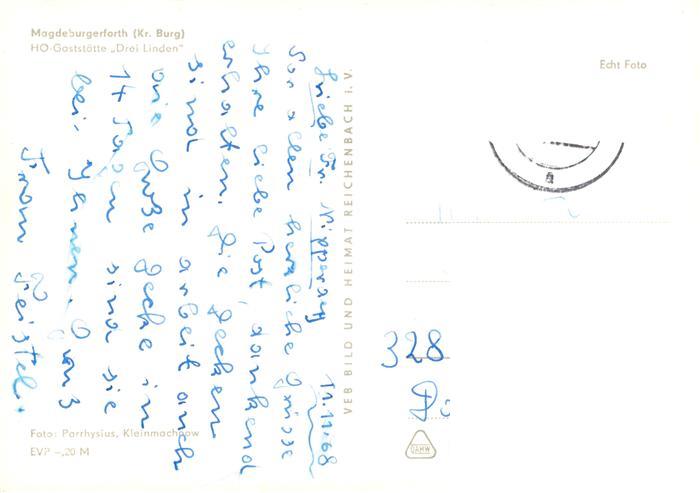 Magdeburgerforth (Kr. Burg)
HO-Gaststätte „Drei Linden"
Echt Foto
VEB BILD UND HEIMAT REICHENBACH i. V.
11.11.68
Liebe Fr.
Vor allem herzliche Grüsse
Ihre liebe Post, dankend
erhalten. Die Decken
sind in arbeit auch
die große Decke in
14 Tagen sind sie
bei Ihnen.
328
Foto: Parrhysius, Kleinmachnow
EVP –,20 M
DAHW